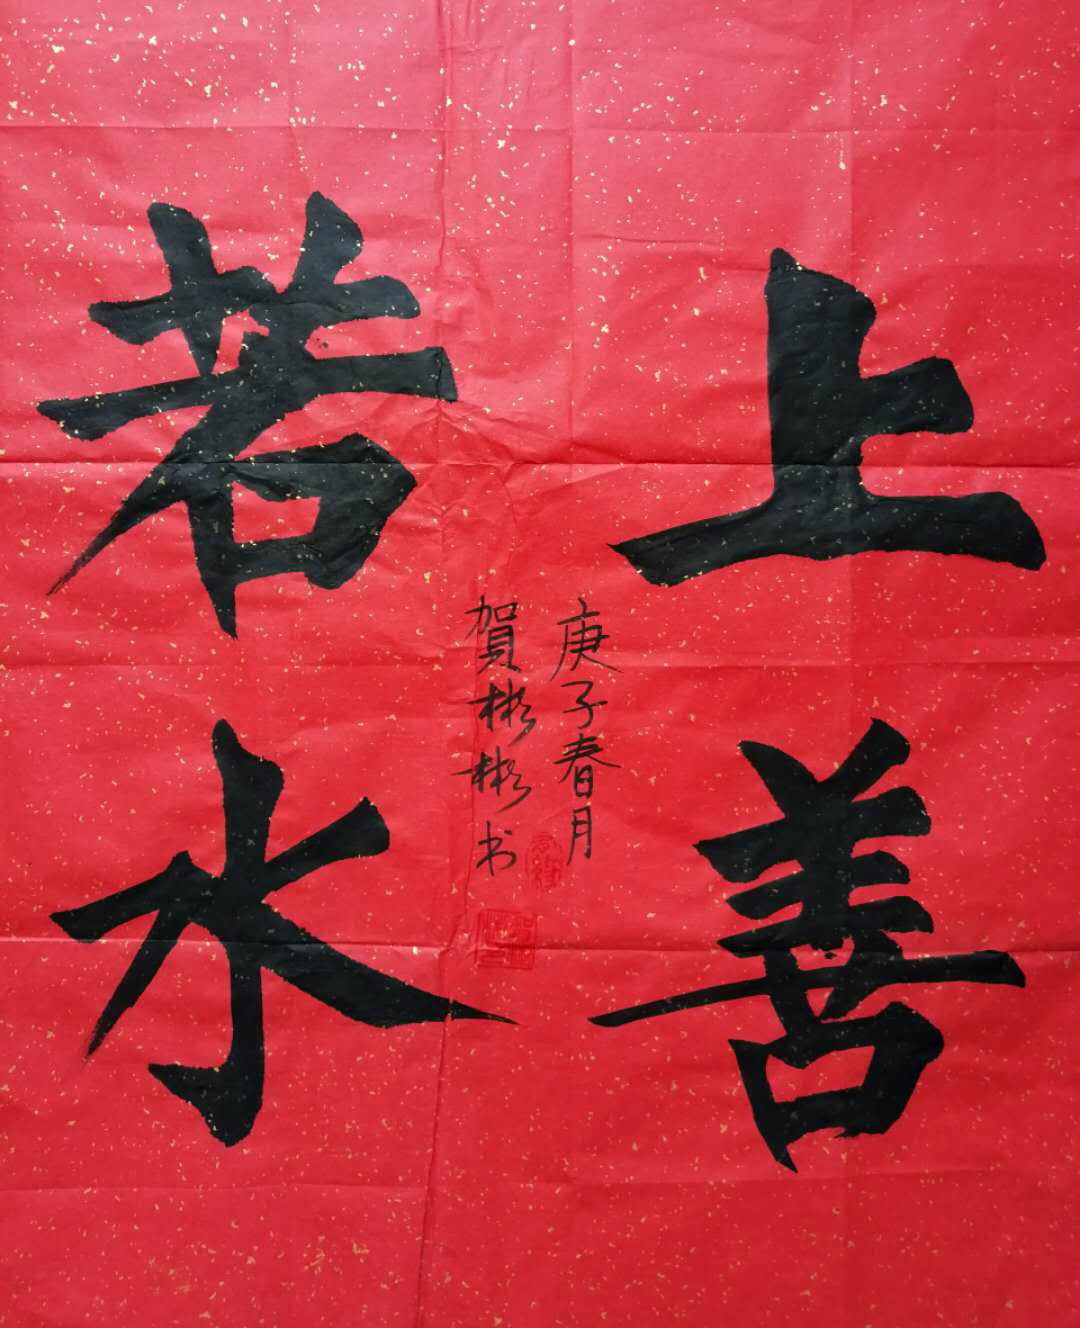 上善
若水
庚子春月
賀彬彬书